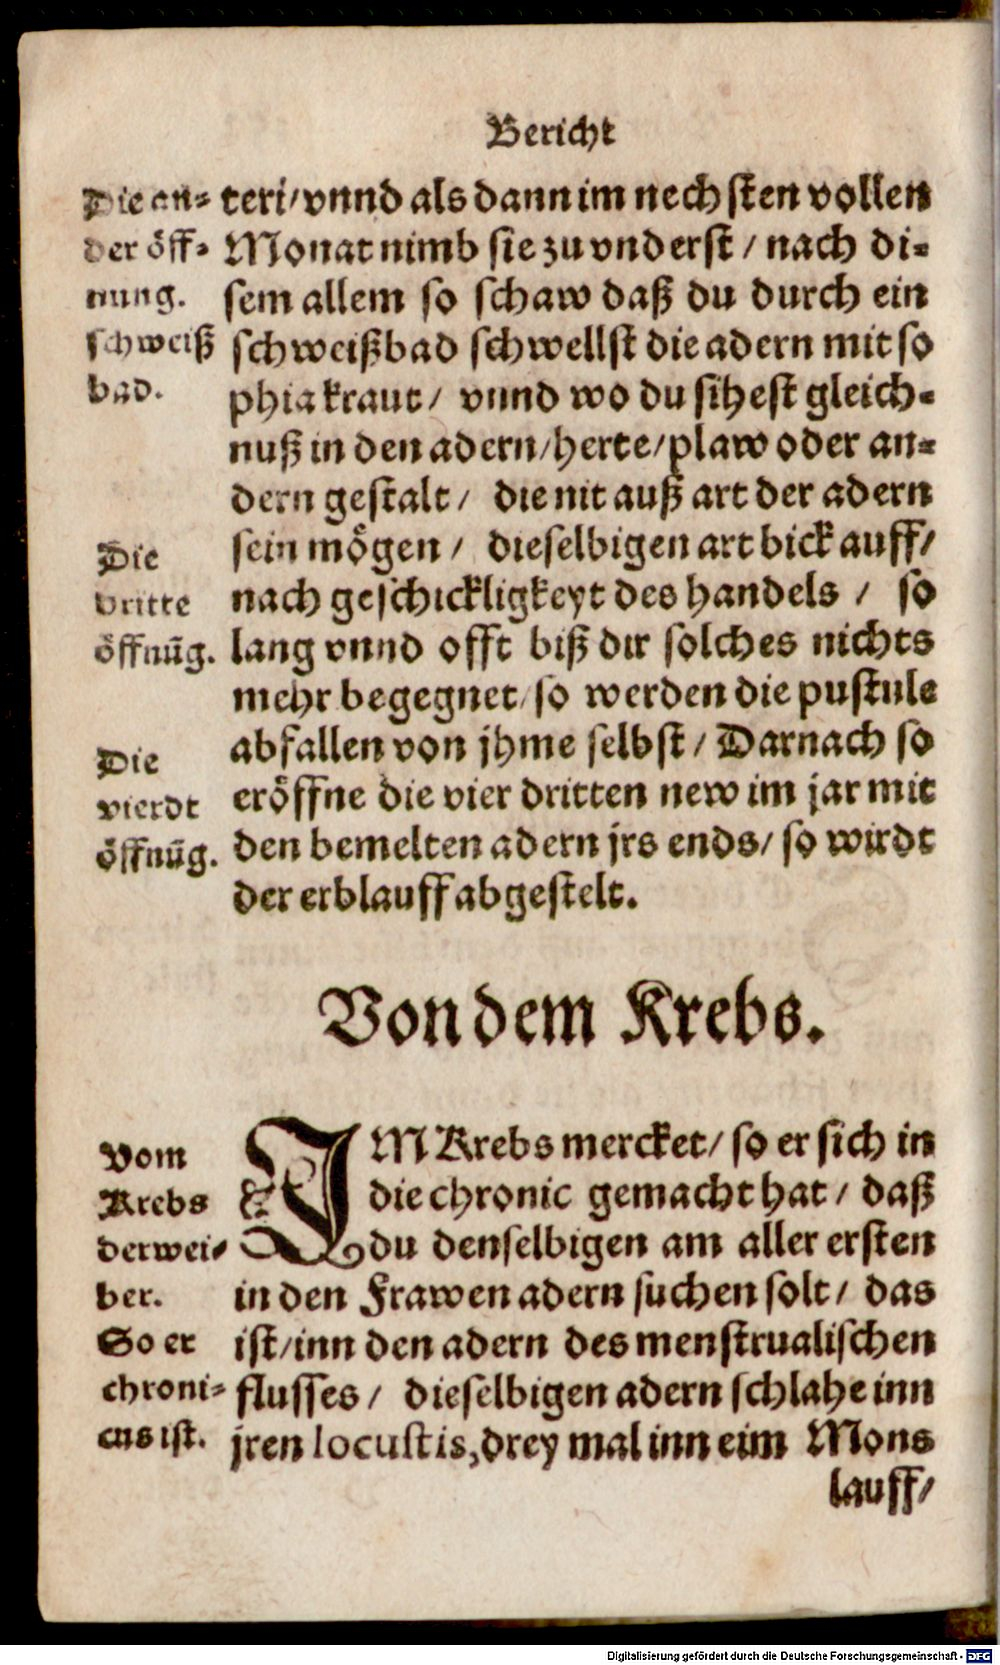 Bericht
Die an-
der öff-
nung.
schweiß
bad.
teri/vnnd als dann im nechsten vollen
Monat nimb sie zu vnderst / nach di-
sem allem so schaw daß du durch ein
schweißbad schwellst die adern mit so
phia kraut / vnnd wo du sihest gleich-
nuß in den adern/herte/plaw oder an-
dern gestalt / die nit auß art der adern
sein mögen / dieselbigen art bick auff/
nach geschickligkeyt des handels / so
lang vnnd offt biß dir solches nichts
mehr begegnet/so werden die pustule
abfallen von jhme selbst / Darnach so
eröffne die vier dritten new im jar mit
den bemelten adern jrs ends/ so wirdt
der erblauff abgestelt.
Die
dritte
öffnūg.
Die
vierdt
öffnūg.
Von dem Krebs.
Vom
Krebs
der wei-
ber.
So er
chroni-
cus ist.
IM Krebs mercket/ so er sich in
die chronic gemacht hat / daß
du denselbigen am aller ersten
in den Frawen adern suchen solt / das
ist/inn den adern des menstrualischen
flusses / dieselbigen adern schlahe inn
jren locustis, drey mal inn eim Mons
lauff/
Digitalisierung gefördert durch die Deutsche Forschungsgemeinschaft - DFG